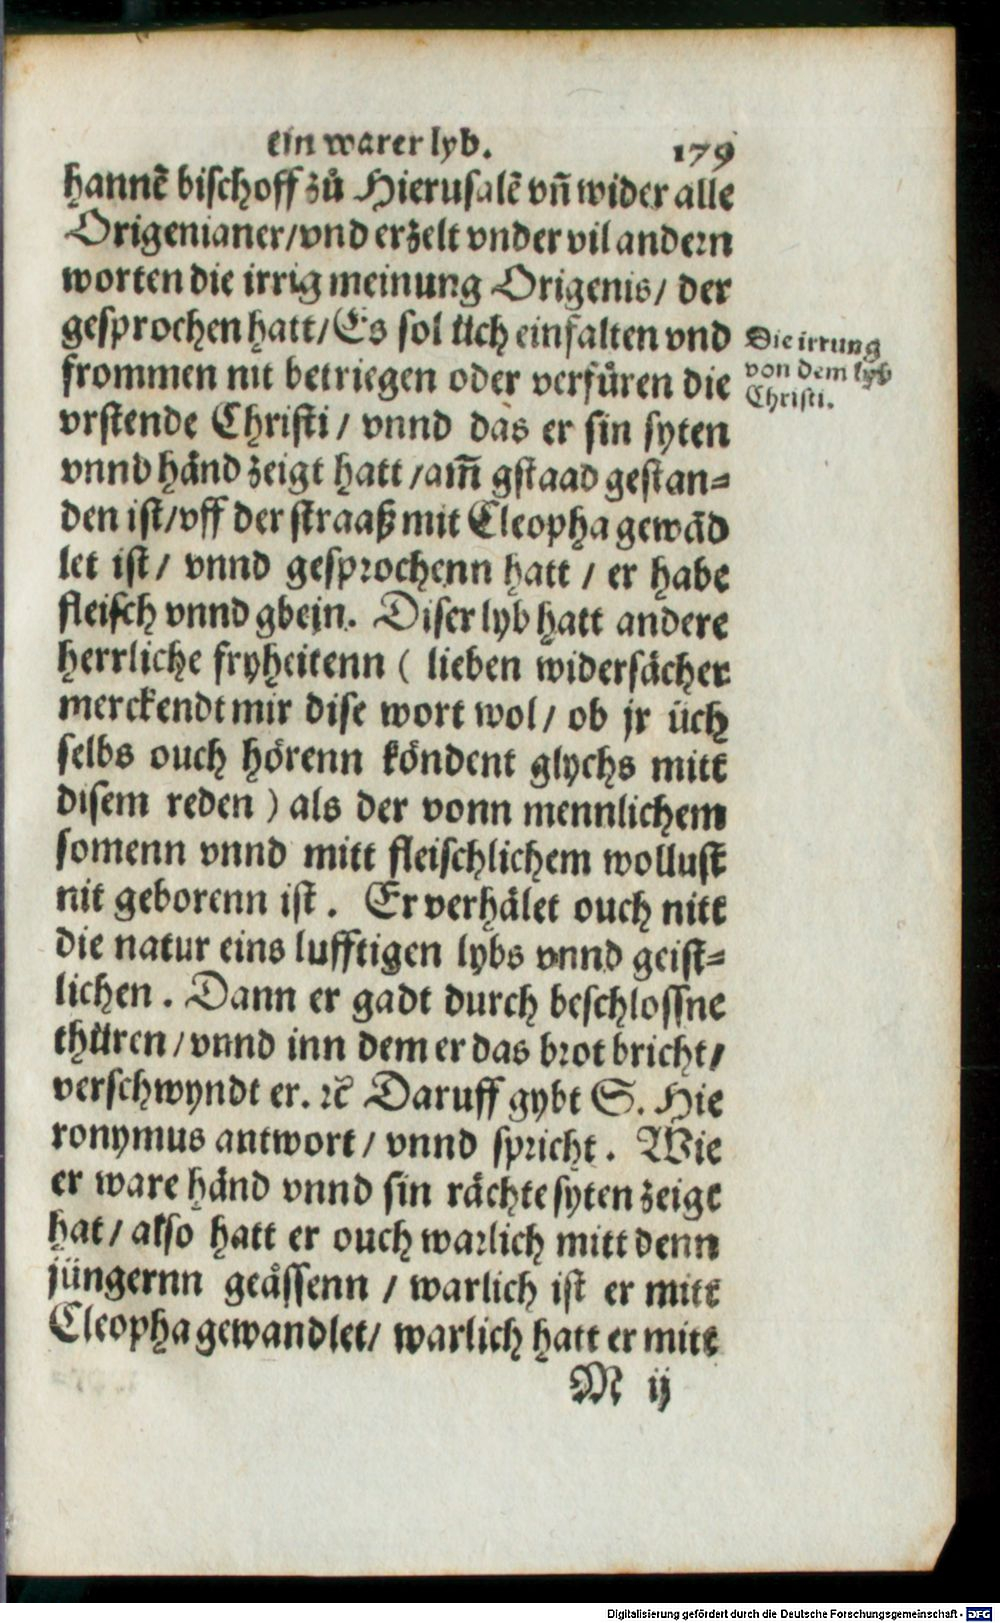 ein warer lyb. 179
hannē bischoff zů Hierusalē vñ wider alle
Origenianer/vnd erzelt vnder vil andern
worten die irrig meinung Origenis/ der
gesprochen hatt/Es sol üch einfalten vnd
frommen nit betriegen oder verfüren die
vrstende Christi/ vnnd das er sin syten
vnnd händ zeigt hatt/am̃ gstaad gestan⸗
den ist/vff der straaß mit Cleopha gewād
let ist/ vnnd gesprochenn hatt/ er habe
fleisch vnnd gbein. Diser lyb hatt andere
herrliche fryheitenn ( lieben widersächer
merckendt mir dise wort wol/ ob jr üch
selbs ouch hörenn köndent glychs mitt
disem reden ) als der vonn mennlichem
somenn vnnd mitt fleischlichem wollust
nit geborenn ist. Er verhälet ouch nitt
die natur eins lufftigen lybs vnnd geist⸗
lichen. Dann er gadt durch beschlossne
thüren/vnnd inn dem er das brot bricht/
verschwyndt er. ꝛc̃ Daruff gybt S. Hie
ronymus antwort/ vnnd spricht. Wie
er ware händ vnnd sin rächte syten zeigt
hat/ also hatt er ouch warlich mitt denn
jüngernn geässenn / warlich ist er mitt
Cleopha gewandlet/ warlich hatt er mitt
M ij
Die irrung
von dem lyb
Christi.
Digitalisierung gefördert durch die Deutsche Forschungsgemeinschaft - DFG